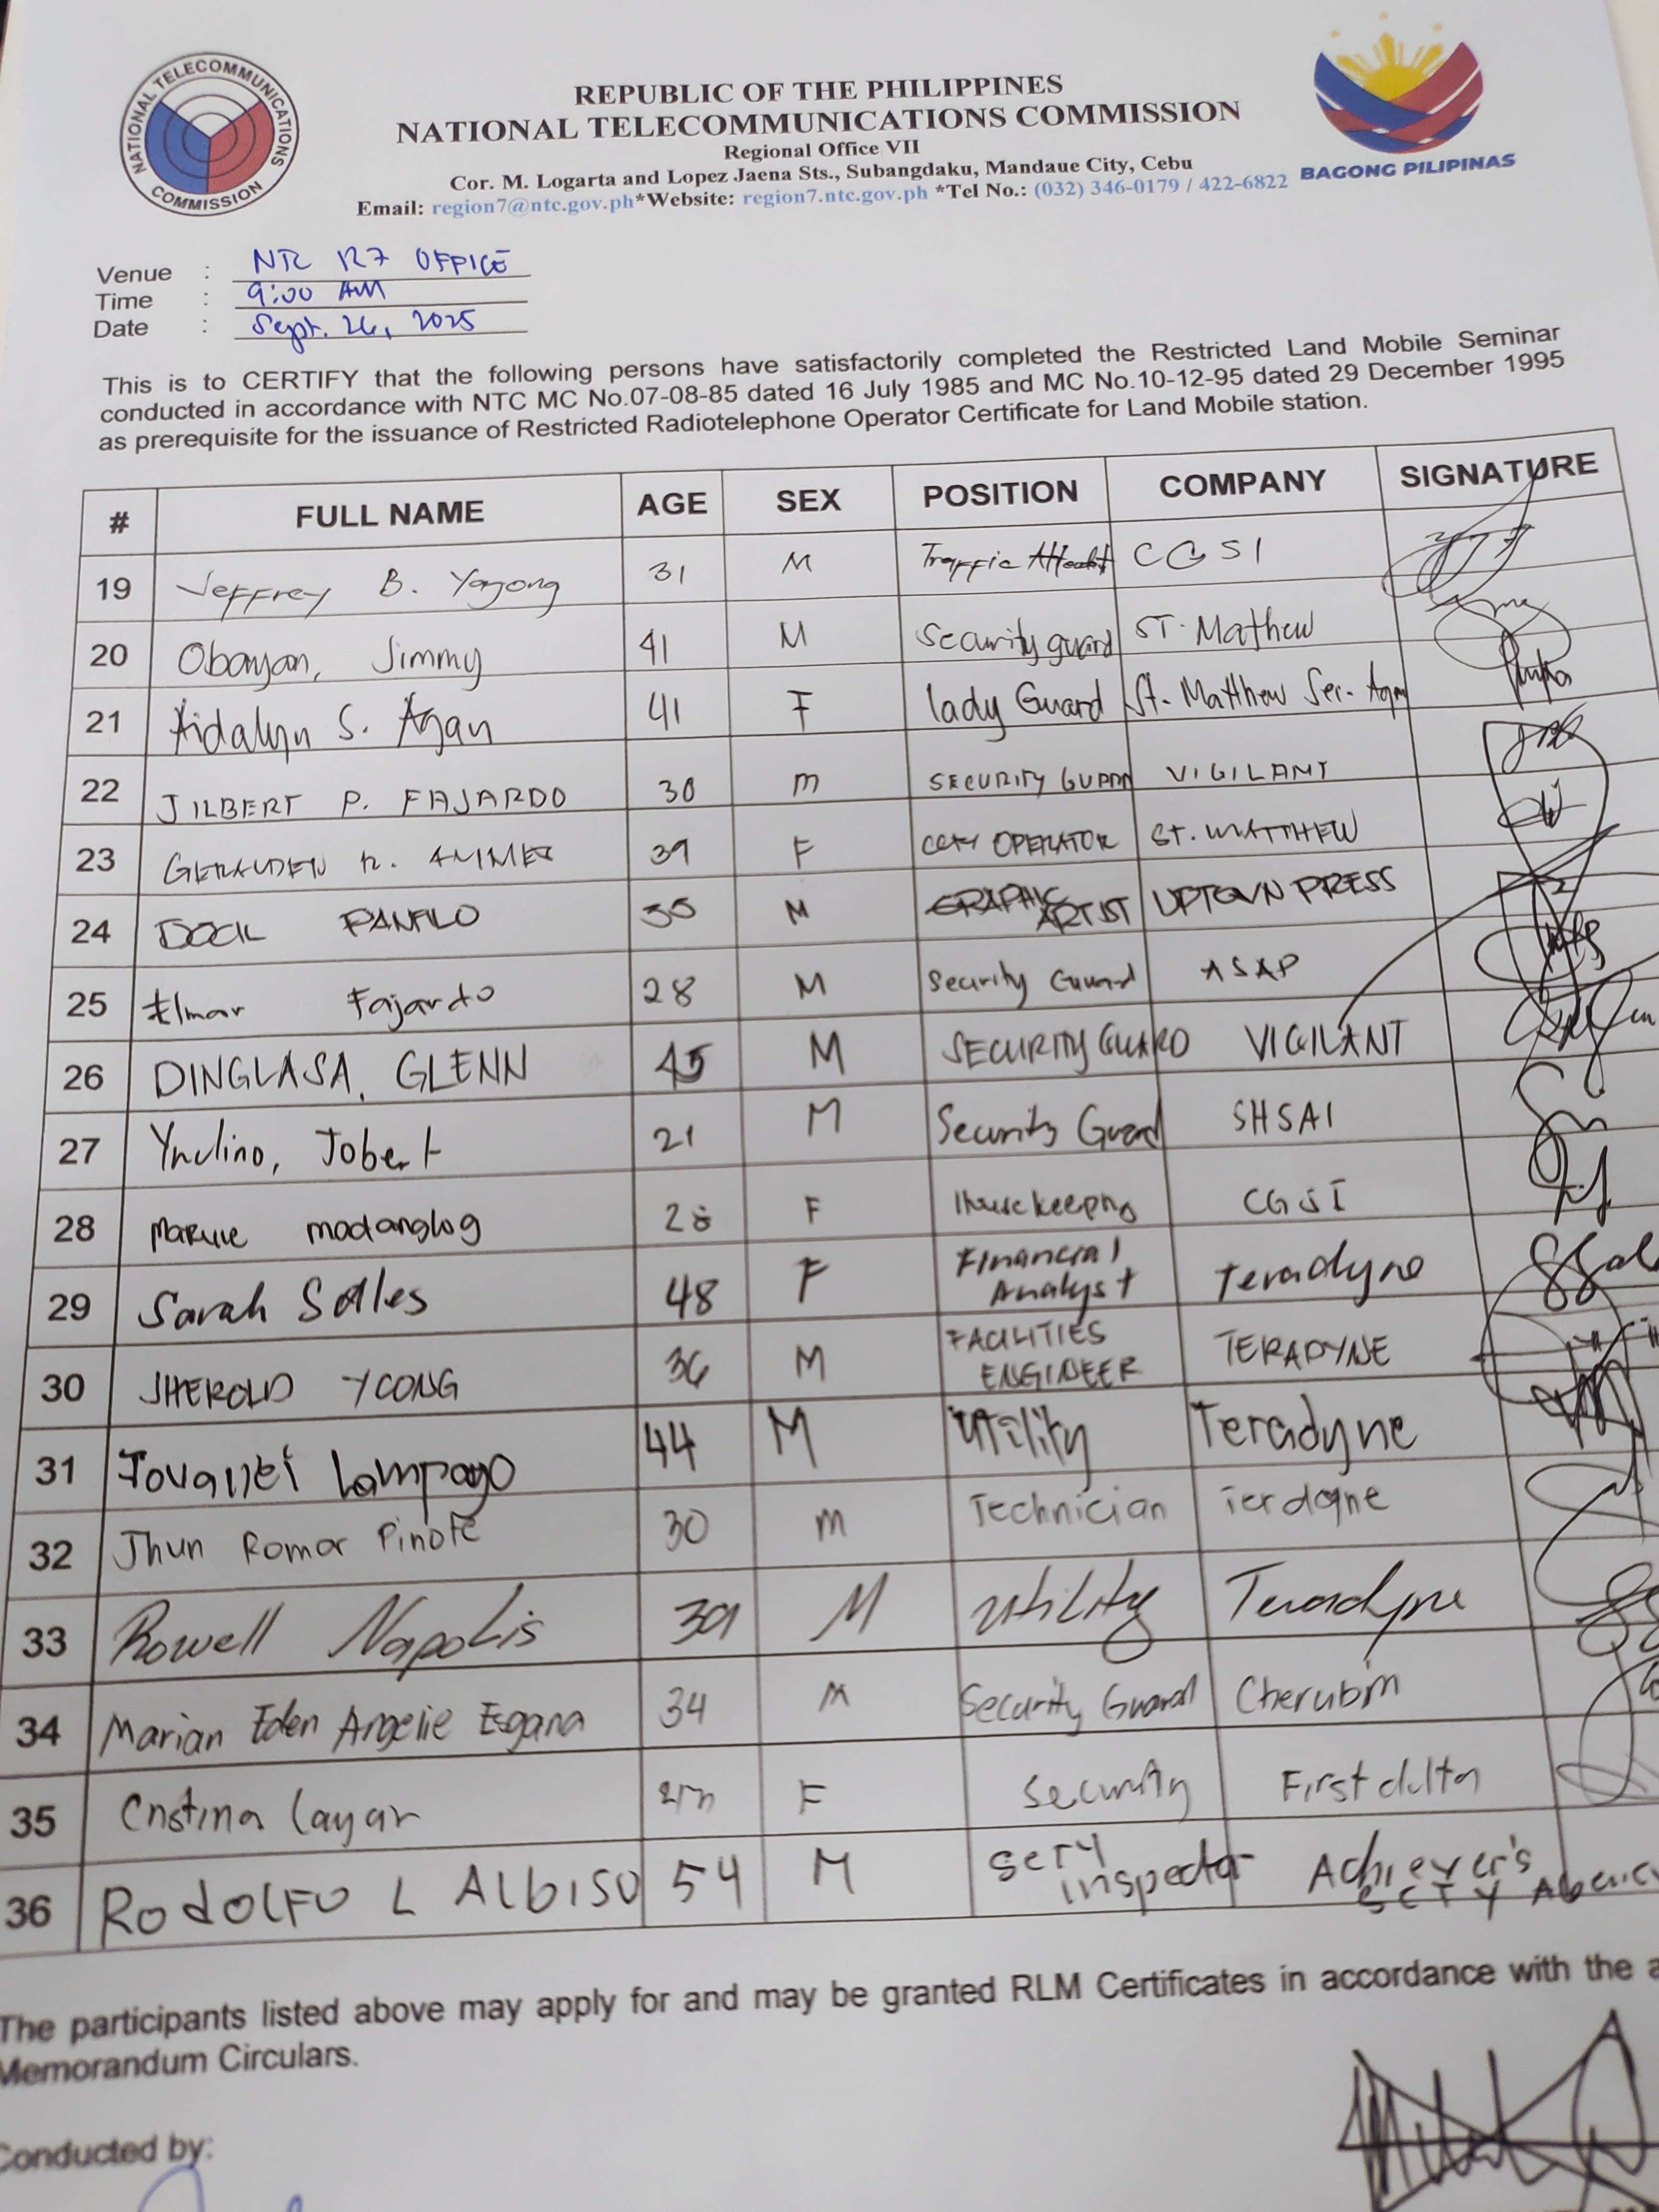 NATIONAL TELECOMMUNICATIONS COMMISSION
BAGONG PILIPINAS
REPUBLIC OF THE PHILIPPINES
NATIONAL TELECOMMUNICATIONS COMMISSION
Regional Office VII
Cor. M. Logarta and Lopez Jaena Sts., Subangdaku, Mandaue City, Cebu
Email: region7@ntc.gov.ph*Website: region7.ntc.gov.ph *Tel No.: (032) 346-0179 / 422-6822
Venue : NTC R7 OFFICE
Time : 9:00 AM
Date : Sept. 26, 2025
This is to CERTIFY that the following persons have satisfactorily completed the Restricted Land Mobile Seminar
conducted in accordance with NTC MC No.07-08-85 dated 16 July 1985 and MC No.10-12-95 dated 29 December 1995
as prerequisite for the issuance of Restricted Radiotelephone Operator Certificate for Land Mobile station.
# FULL NAME AGE SEX POSITION COMPANY SIGNATURE
19 Jeffrey B. Yagong 31 M Traffic CGSI
20 Obayan, Jimmy 41 M Security guard ST. Mathew
21 Aidalyn S. Agan 41 F lady Guard St. Matthew Ser.
22 JILBERT P. FAJARDO 30 m SECURITY GUARD VIGILANT
23 39 F CCTV OPERATOR ST. MATTHEW
24 DOCIL PANFILO 35 M GRAPHIC ARTIST UPTOWN PRESS
25 Elmar Fajardo 28 M Security Guard ASAP
26 DINGLASA, GLENN 45 M SECURITY GUARD VIGILANT
27 Jobert 21 M Security Guard SHSAI
28 madanglog F Housekeeping CGSI
29 Sarah Salles 48 F Financial Analyst teradyne
30 JHEROLD YCONG 36 M FACILITIES ENGINEER TERADYNE
31 Lampago 44 M Utility Teradyne
32 Jhun Romar Pinote 30 m Technician
33 Rowell Napolis 39 M Utility Teradyne
34 Marian Eden Angelie Esgana 34 M Security Guard Cherubim
35 Cristina Layar F Security First delta
36 RodolFo L Albiso 54 M Scty inspector Achiever's SCTY Agency
The participants listed above may apply for and may be granted RLM Certificates in accordance with the a
Memorandum Circulars.
Conducted by: